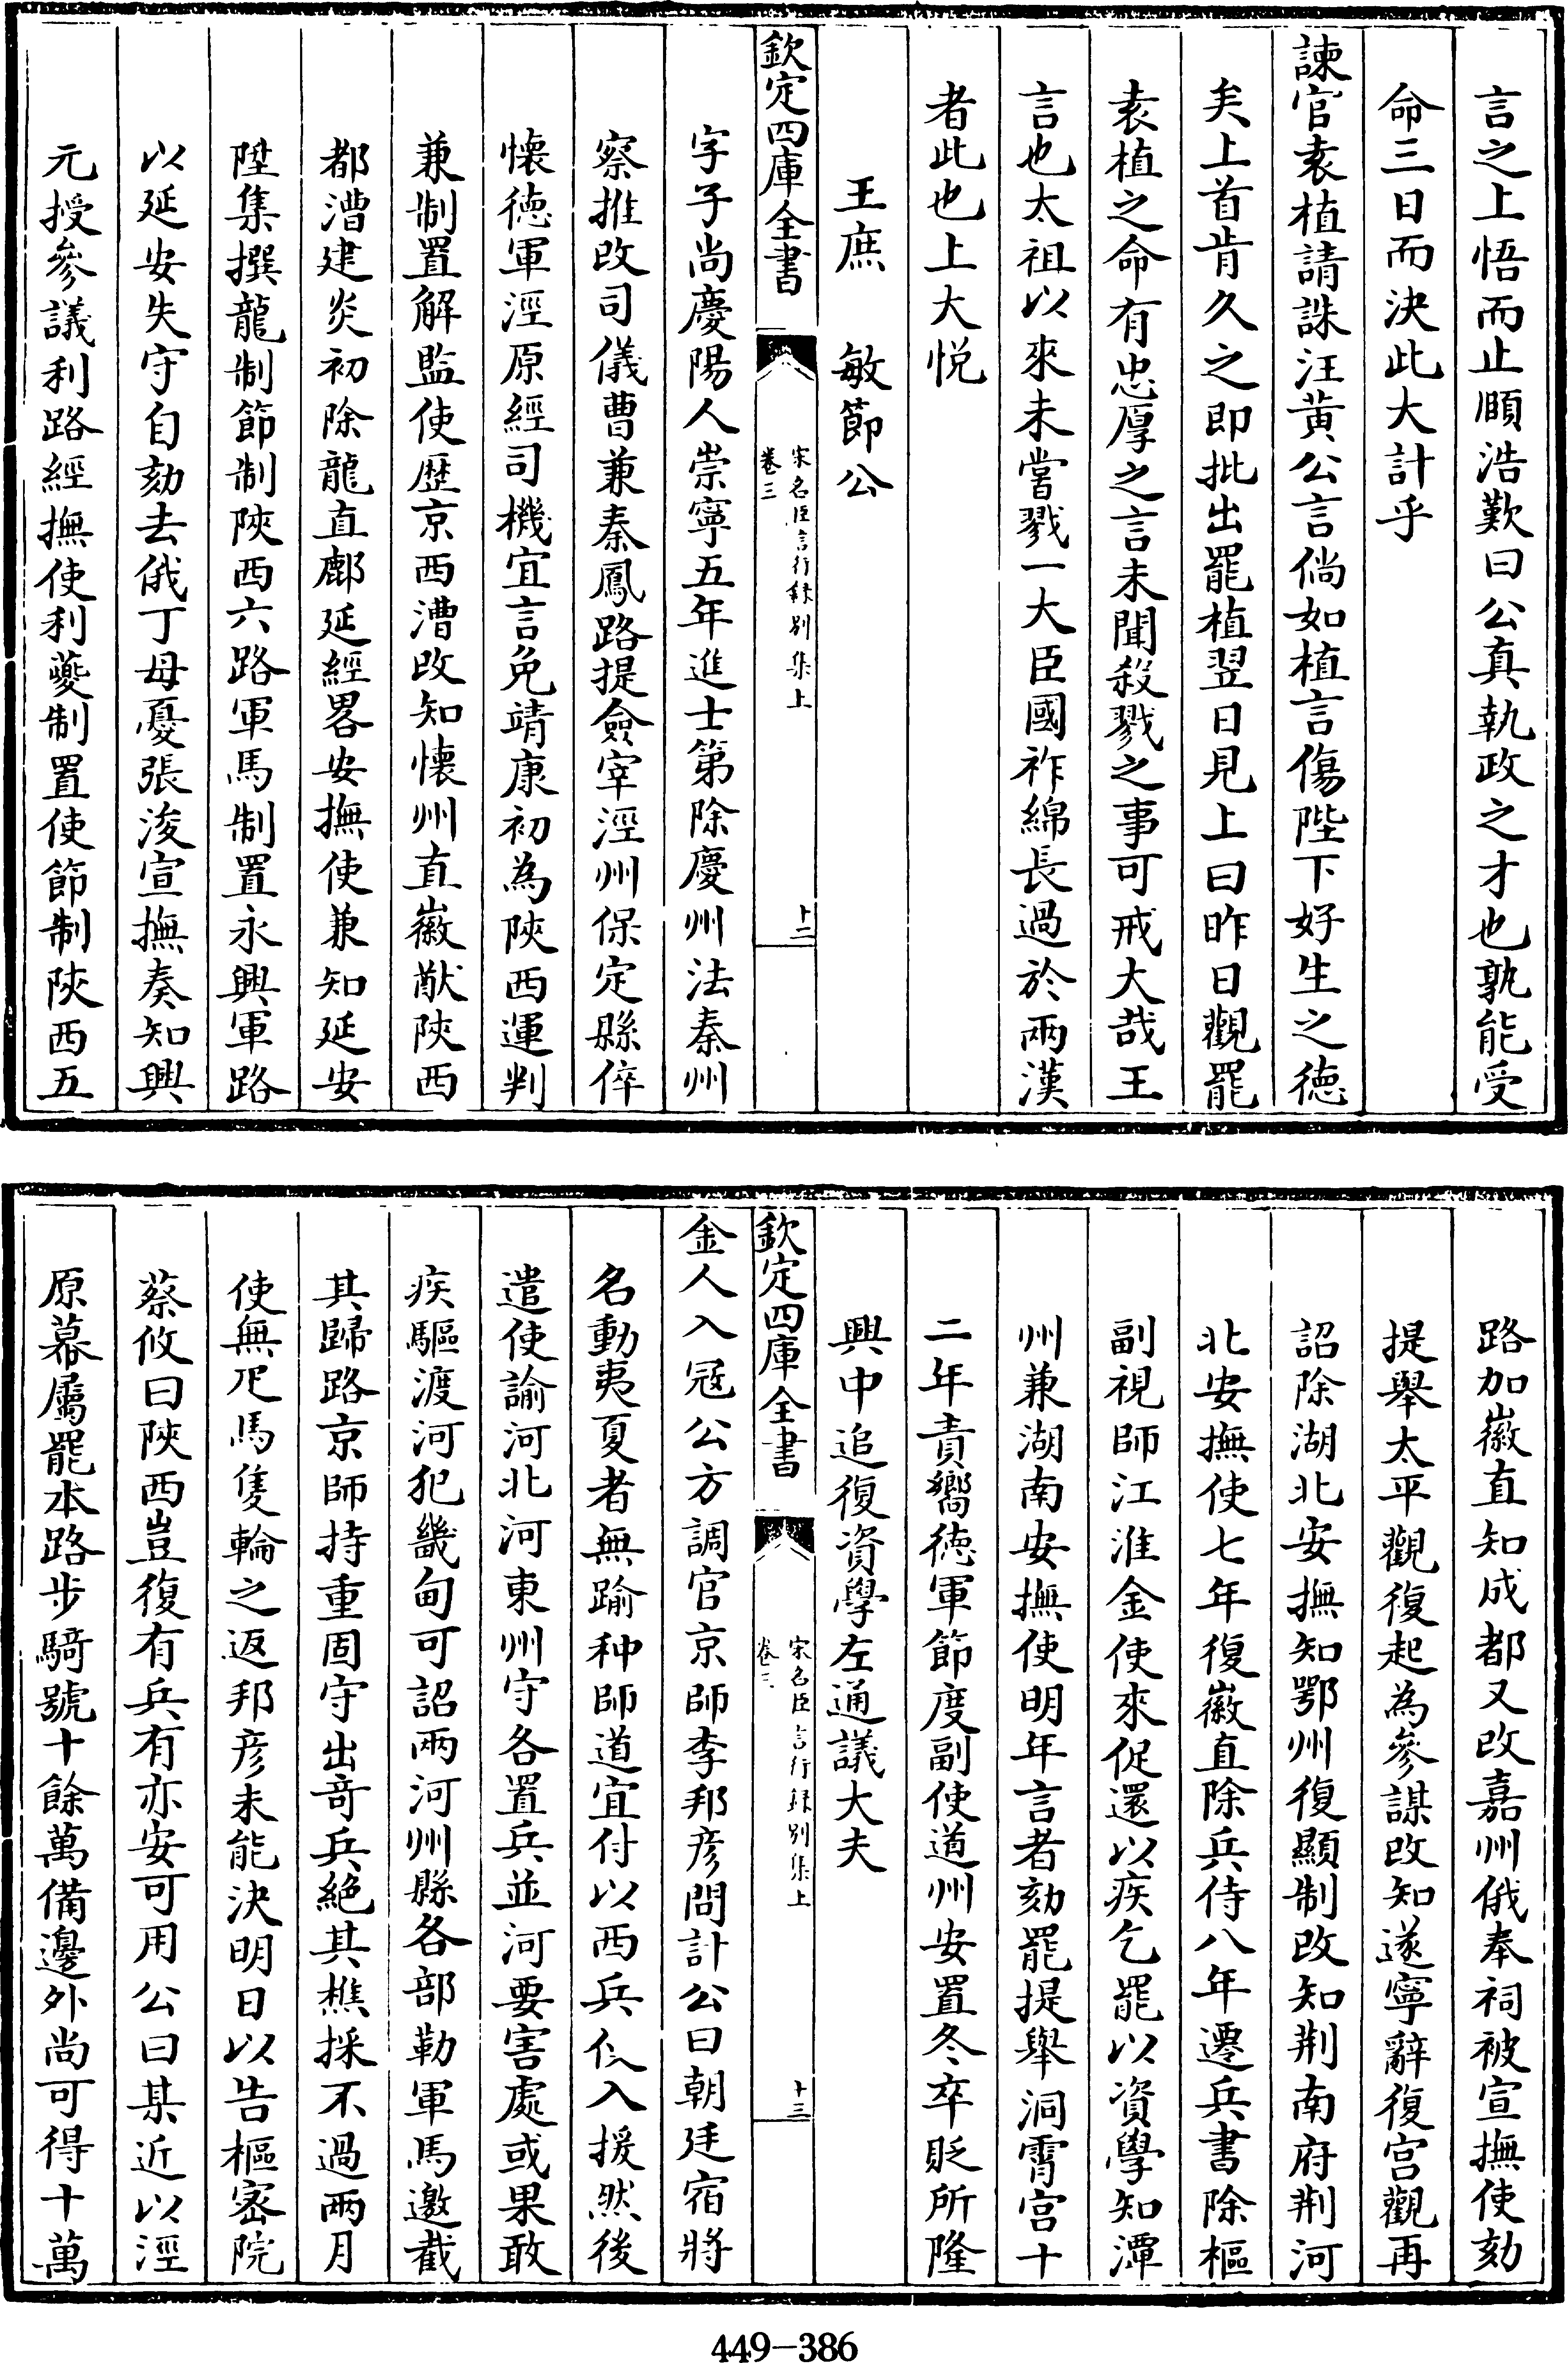 言之上悟而止頤浩歎曰公真執政之才也孰能受
命三日而決此大計乎
諫官袁植請誅汪黄公言倘如植言傷陛下好生之徳
矣上首肯久之即批出罷植翌日見上曰昨日觀罷
袁植之命有忠厚之言未聞殺戮之事可戒大哉王
言也太祖以來未嘗戮一大臣國祚綿長過於兩漢
者此也上大悦
王庶　敏節公
欽定四庫全書
宋名臣言行錄別集上
卷三
十二
字子尚慶陽人崇寧五年進士第除慶州法秦州
察推改司儀曹兼秦鳳路提僉宰涇州保定縣倅
懷徳軍涇原經司機宜言免靖康初為陜西運判
兼制置解監使歴京西漕改知懷州直徽猷陜西
都漕建炎初除龍直鄜延經畧安撫使兼知延安
陞集撰龍制節制陜西六路軍馬制置永興軍路
以延安失守自劾去俄丁母憂張浚宣撫奏知興
元授參議利路經撫使利夔制置使節制陜西五
路加徽直知成都又改嘉州俄奉祠被宣撫使劾
提舉太平觀復起為參謀改知遂寧辭復宫觀再
詔除湖北安撫知鄂州復顯制改知荆南府荆河
北安撫使七年復徽直除兵侍八年遷兵書除樞
副視師江淮金使來促還以疾乞罷以資學知潭
州兼湖南安撫使明年言者劾罷提舉洞霄宫十
二年責嚮徳軍節度副使道州安置冬卒貶所隆
興中追復資學左通議大夫
欽定四庫全書
宋名臣言行録別集上
卷三
十三
金人入冦公方調官京師李邦彦問計公曰朝廷宿將
名動夷夏者無踰种師道宜付以西兵俾入援然後
遣使諭河北河東州守各置兵並河要害處或果敢
疾驅渡河犯畿甸可詔兩河州縣各部勒軍馬邀截
其歸路京師持重固守出奇兵絶其樵採不過兩月
使無疋馬隻輪之返邦彦未能決明日以告樞宻院
蔡攸曰陜西豈復有兵有亦安可用公曰某近以涇
原幕屬罷本路步騎號十餘萬備邊外尚可得十萬
449-386